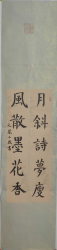 月斜詩夢瘦
風散墨花香